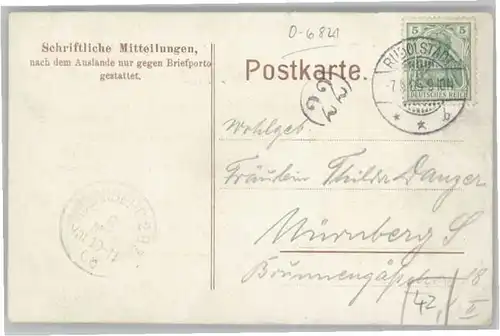 D-6821
Schriftliche Mitteilungen,
nach dem Auslande nur gegen Briefporto
gestattet.
Postkarte.
5 5
DEUTSCHES REICH
RUDOLSTADT
* * b
22
Wohlgeb.
Fräulein Thilda Danger
Nürnberg S
Brunnengäßchen 18
42, II